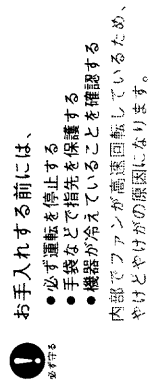 必ず守る
お手入れする前には、
●必ず運転を停止する
●手袋などで指先を保護する
●機器が冷えていることを確認する
内部でファンが高速回転しているため、
やけどやけがの原因になります。